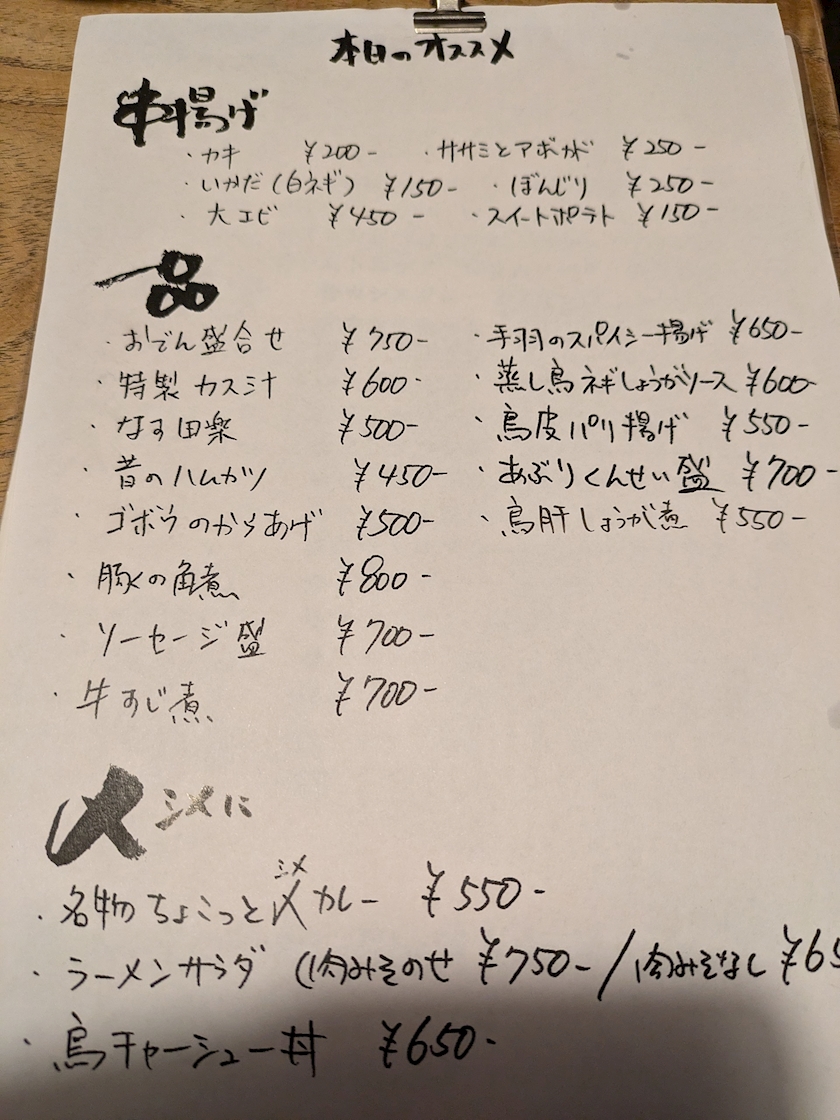 本日のオススメ
串揚げ
・カキ ¥200- ・ササミとアボカド ¥250-
・いかだ(白ネギ) ¥150- ・ぼんじり ¥250-
・大エビ ¥450- ・スイートポテト ¥150-
一品
・おでん盛合せ ¥750- ・手羽のスパイシー揚げ ¥650-
・特製カス汁 ¥600- ・蒸し鳥ネギしょうがソース ¥600-
・なす田楽 ¥500- ・鳥皮パリ揚げ ¥550-
・昔のハムカツ ¥450- ・あぶりくんせい盛 ¥700-
・ゴボウのからあげ ¥500- ・鳥肝しょうが煮 ¥550-
・豚の角煮 ¥800-
・ソーセージ盛 ¥700-
・牛すじ煮 ¥700-
〆 シメに
・名物ちょこっと〆シメカレー ¥550-
・ラーメンサラダ (肉みそのせ ¥750- / 肉みそなし ¥65
・鳥チャーシュー丼 ¥650-